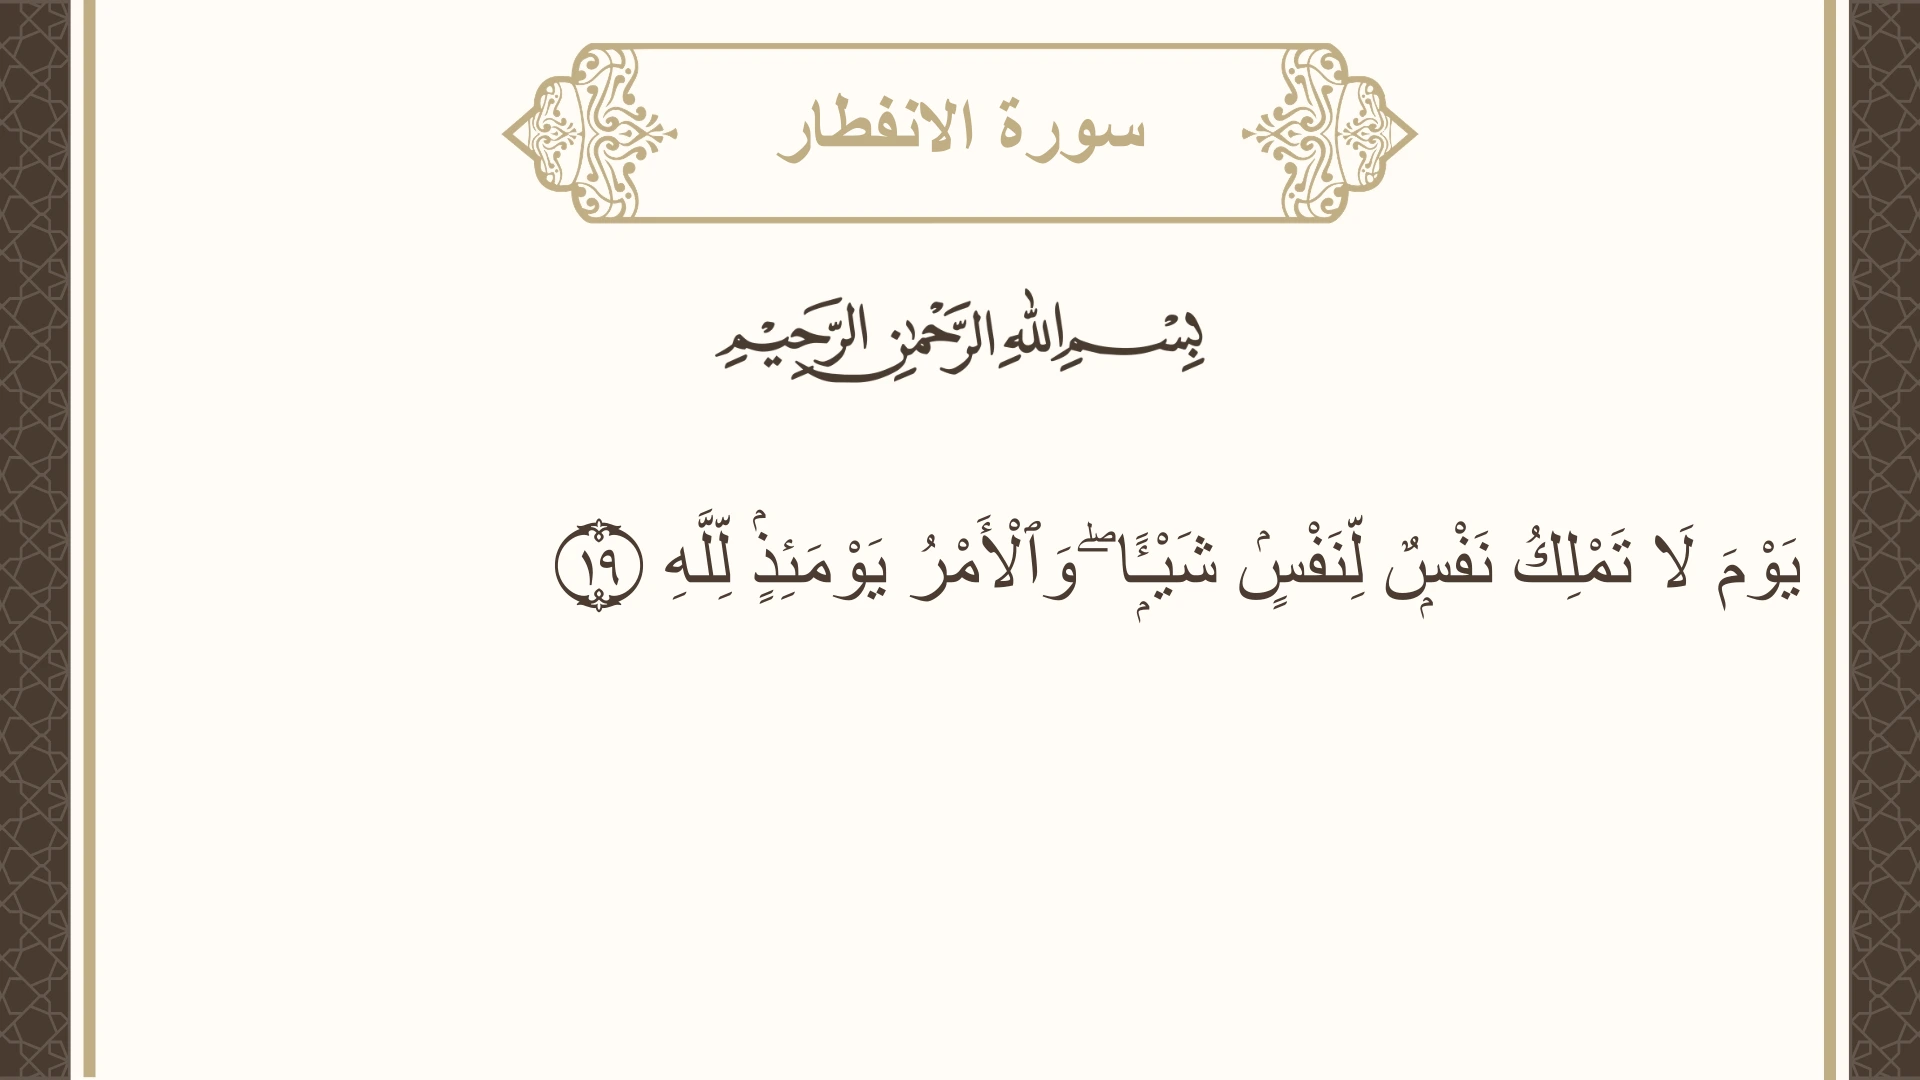 سورة الانفطار
بِسْمِ اللهِ الرَّحْمٰنِ الرَّحِيْمِ
يَوْمَ لَا تَمْلِكُ نَفْسٌۭ لِّنَفْسٍۢ شَيْـًۭٔا ۖ وَٱلْأَمْرُ يَوْمَئِذٍۢ لِّلَّهِ ١٩